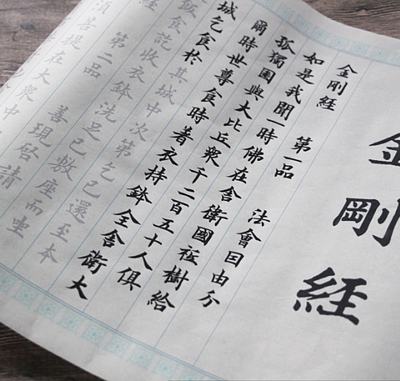 金剛経
金剛経 第一品 法會因由分
如是我聞一時佛在舍衛國祗樹給
孤獨園與大比丘衆千二百五十人俱
爾時世尊食時著衣持鉢全舍衛大
城乞食於其城中次第乞已還至本
飯食訖收衣鉢洗足已敷座而坐
第二品 善現啓請
須菩提在大衆中